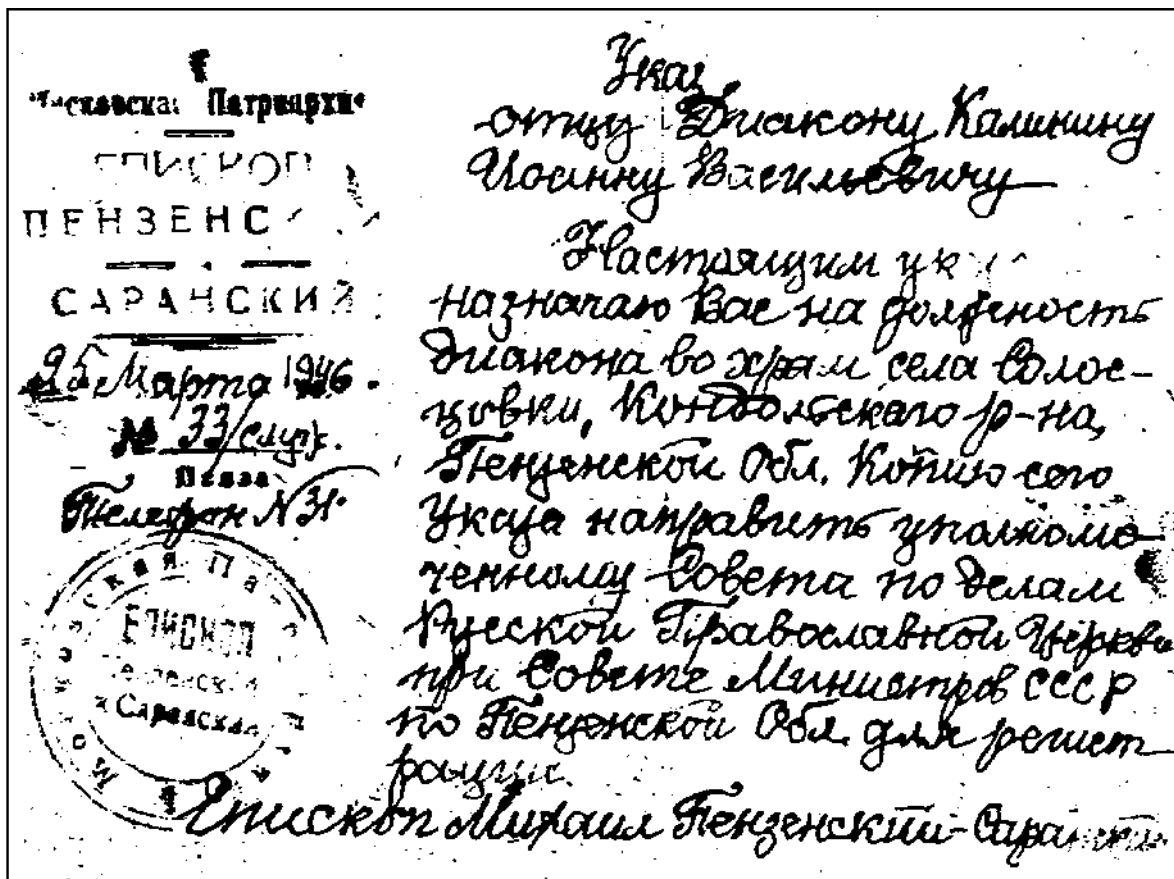 Московская Патриархия
ЕПИСКОП
ПЕНЗЕНС
САРАНСКИЙ
25 Марта 1946.
№ 33/служ.
Пенза
Телефон N 31.
Московская Пат
Епископ
Пензенский
и Саранский
Указ
отцу Диакону Калинину
Иоанну Васильевичу
Настоящим ук
назначаю Вас на должность
диакона во храм села Солос-
цовки, Кондольскаго р-на,
Пензенской Обл. Копию сего
Указа направить уполномо-
ченному Совета по делам
Русской Православной Церкви
при Совете Министров СССР
по Пензенской Обл. для регист-
рации.
Епископ Михаил Пензенский-Саранский